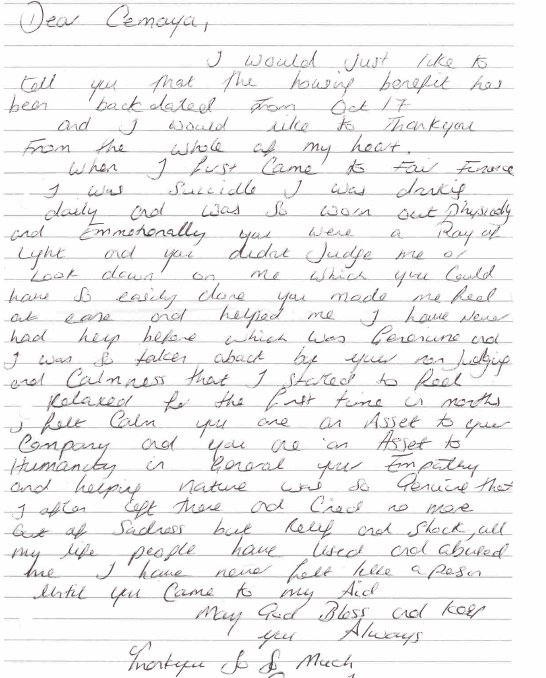 Dear Cemaya,
I would just like to
tell you that the housing benefit has
been backdated from Oct 17
and I would like to Thankyou
From the whole of my heart.
When I first Came to Fair Finance
I was Suicidle I was drinking
daily and was so worn out Physically
and Emmotionally you were a Ray of
Light and you didnt Judge me or
Look down on me which you Could
have so easily done you made me feel
at ease and helped me I have Never
had help before which was Generine and
I was so taken aback by your non Judging
and Calmness that I started to Feel
Relaxed for the first time in months
I felt Calm you are an Asset to your
Company and you are an Asset to
Humanity in General your Empathy
and helping nature was so Genuine that
I after left there and Cried no more
out of Sadness but Relief and Shock, all
my life people have Used and abused
me I have never felt like a person
Until you Came to my Aid
May God Bless and Keep
you Always
Thankyou So So Much